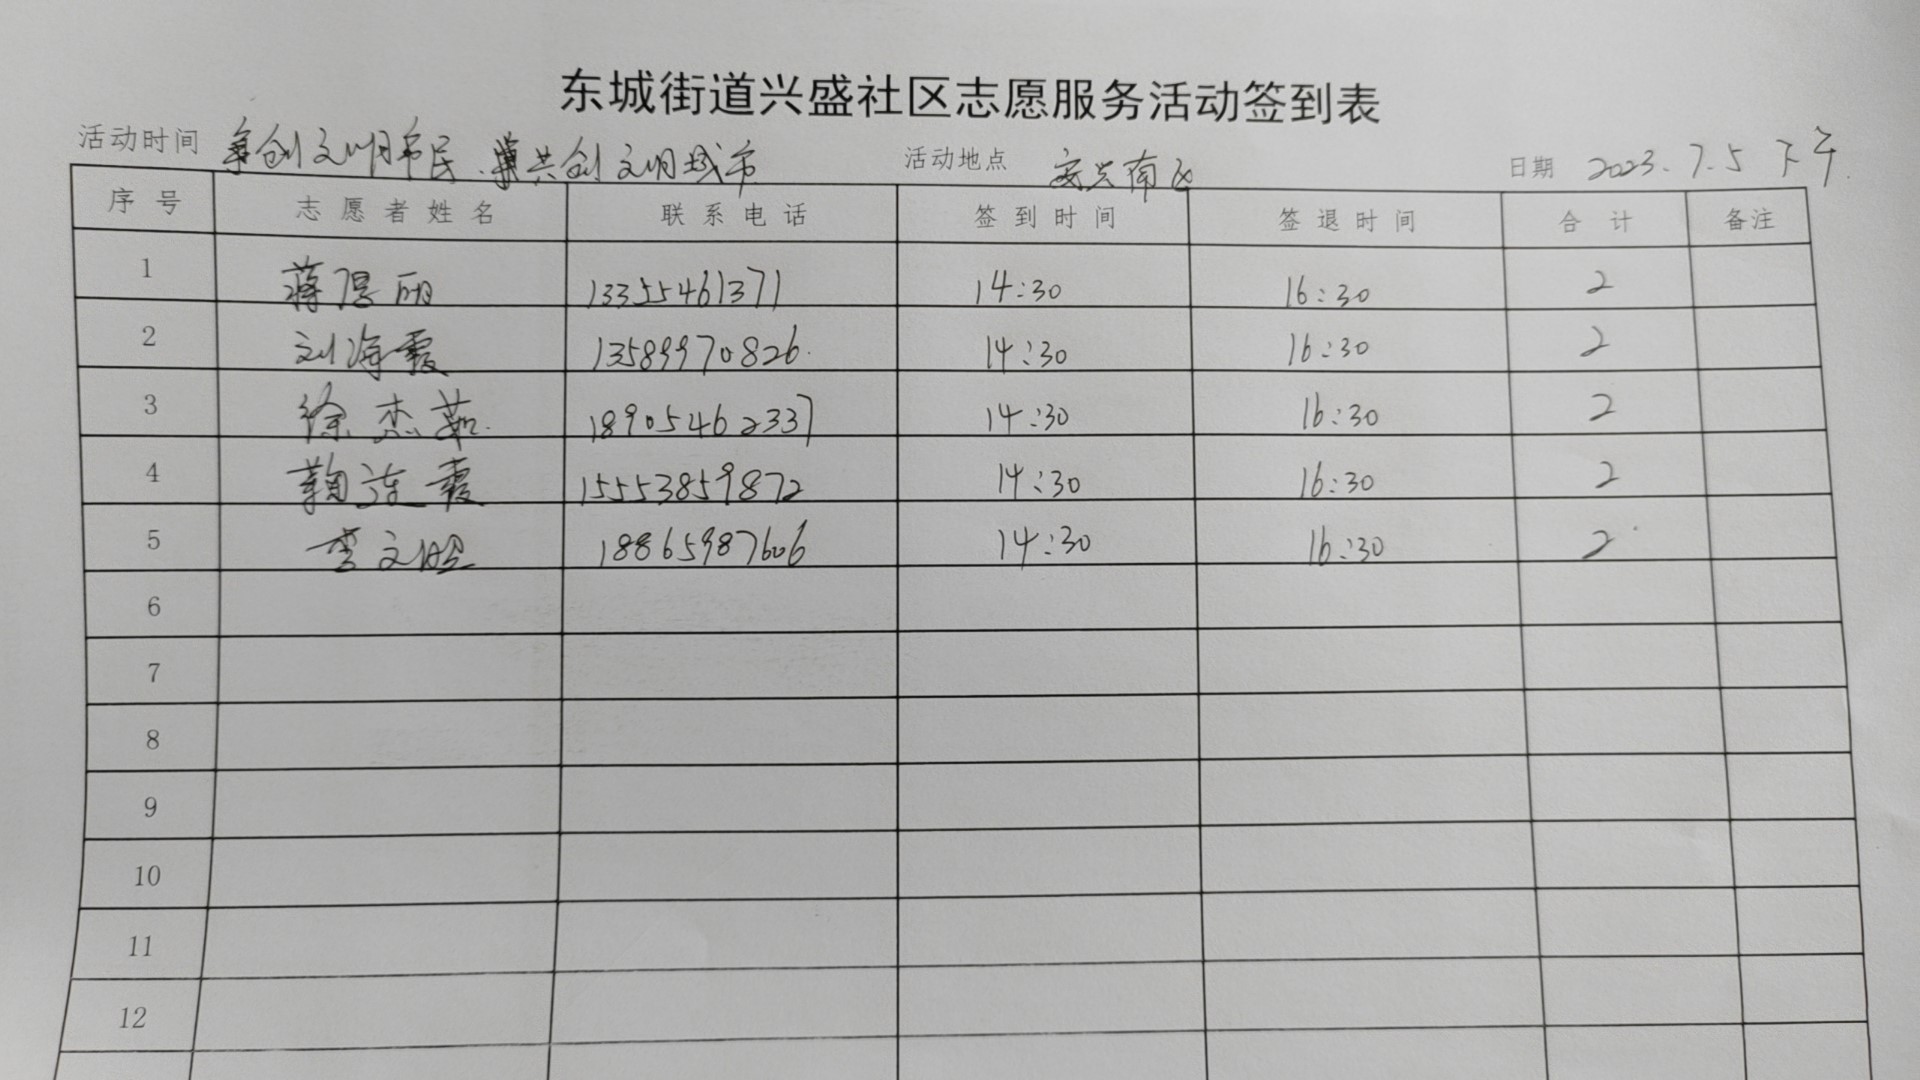 东城街道兴盛社区志愿服务活动签到表
活动时间 争创文明市民.共创文明城市 活动地点 安兴南区 日期 2023.7.5 下午
序号 志愿者姓名 联系电话 签到时间 签退时间 合计 备注
1 蒋恩丽 13355461371 14:30 16:30 2
2 刘海霞 13589970826 14:30 16:30 2
3 徐杰茹 18905462337 14:30 16:30 2
4 鞠连霞 15553859872 14:30 16:30 2
5 李文 18865987606 14:30 16:30 2
6
7
8
9
10
11
12